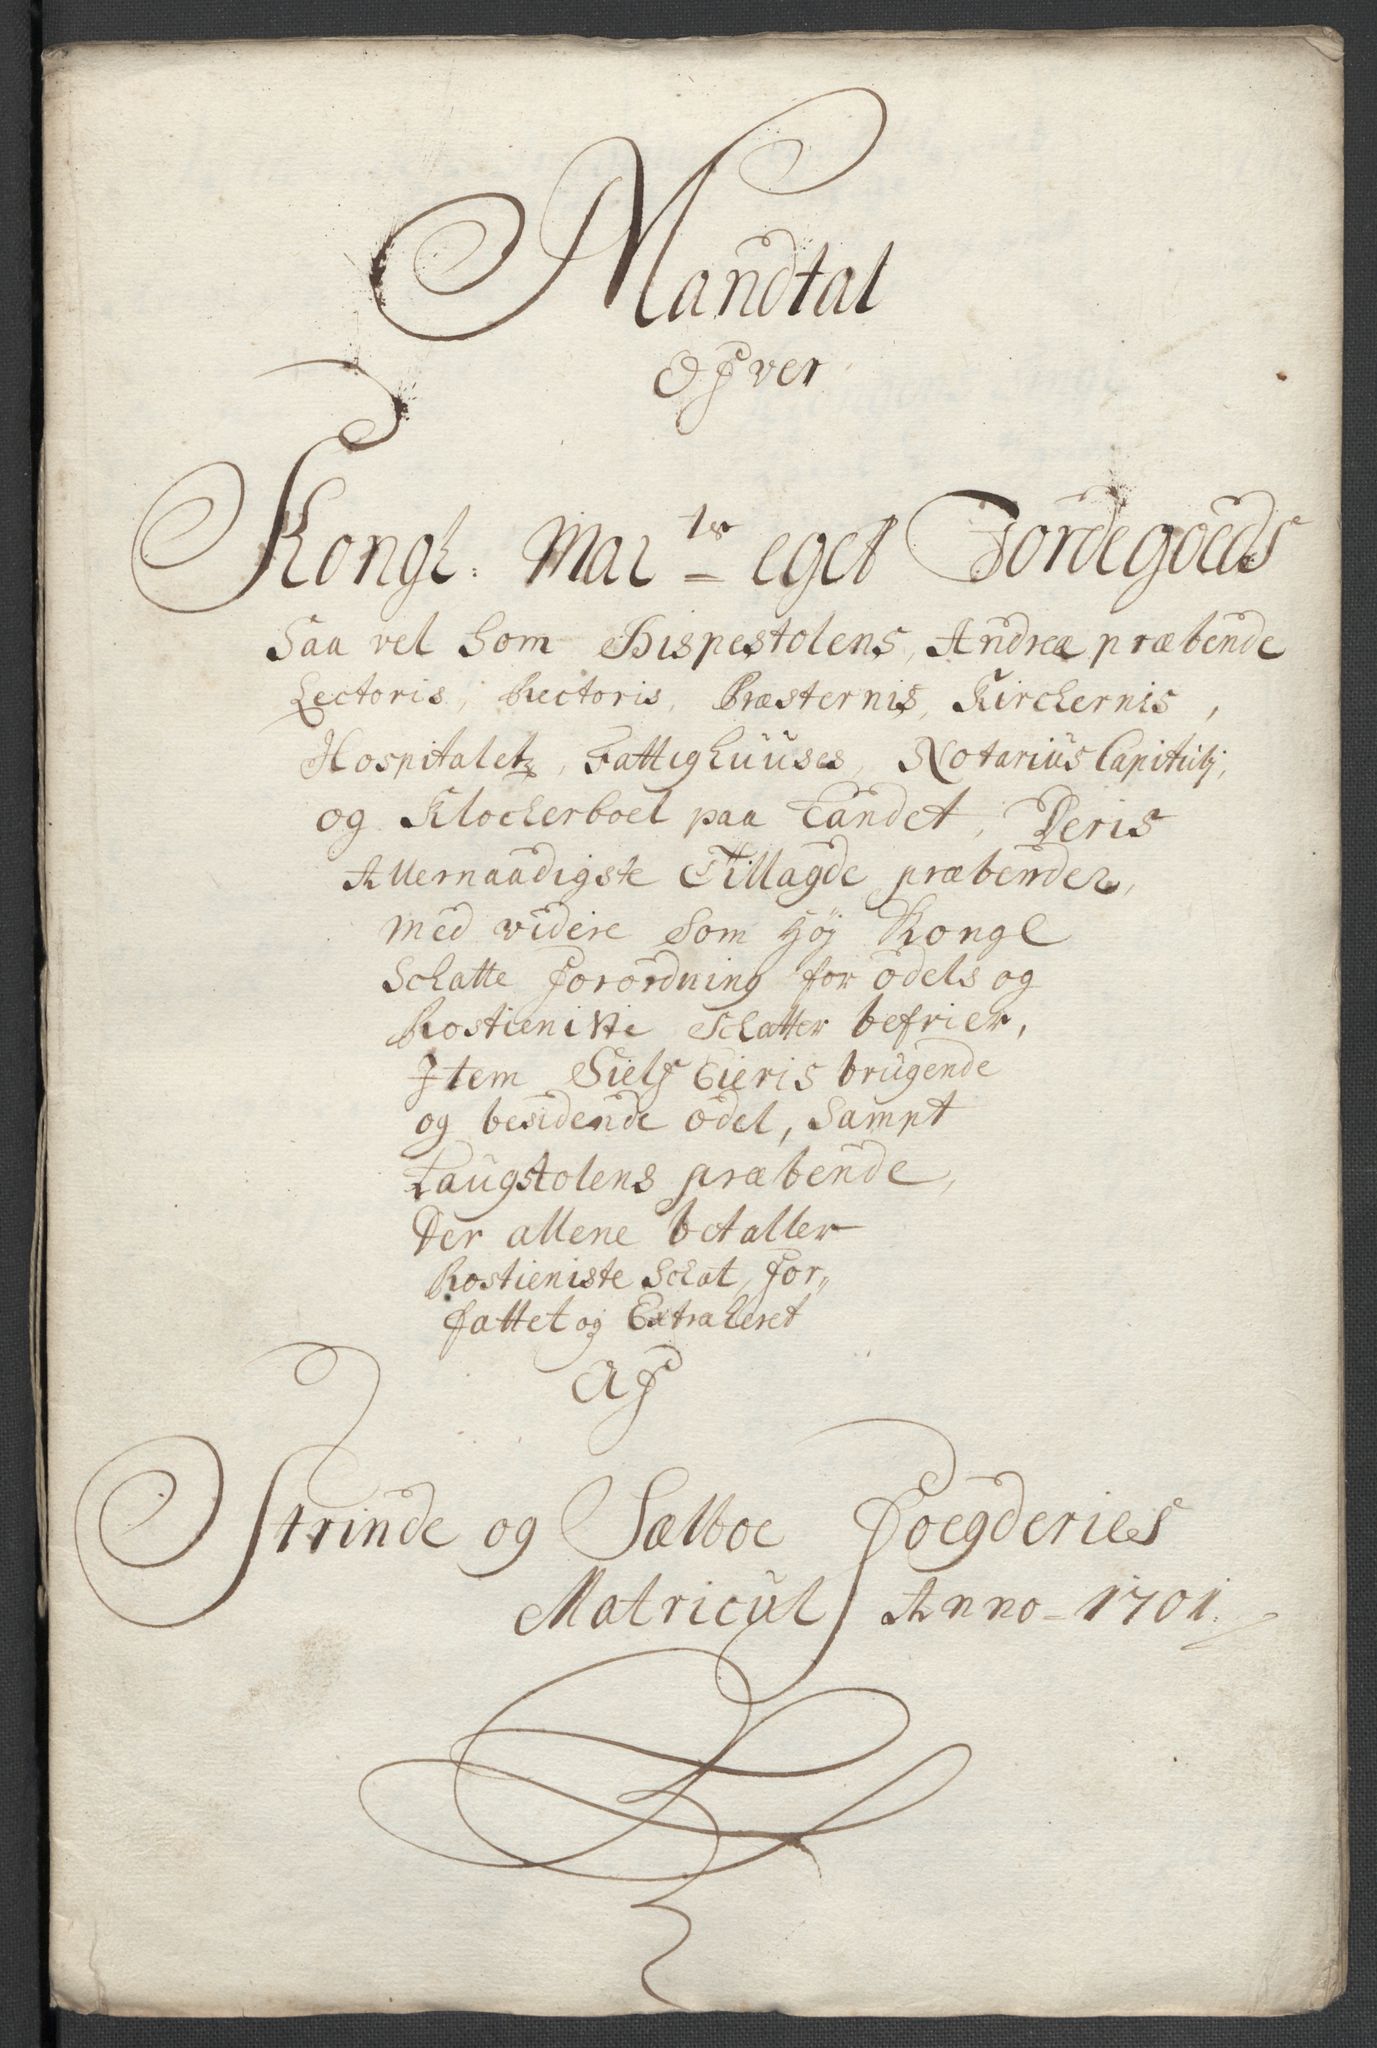 Mandtal
Ofver
Kongl: Maitz eget Jordegoeds
Saa vel Som Bispestolens, Andreæ præbende
Lectoris, Rectoris, Præsternis, Kirchernis,
Hospitaletz, Fattighuuses, Notarius Capitulj,
og Klocherboel paa Landet, Deris
Allernaadigste Tillagde præbender,
med videre Som Høj Kongl
Schatte Forordning for odels og
Rostieniste Schatter befrier,
Item Sielf Eieris brugende
og besidende odel, Sampt
Laugstolens præbende,
Der allene betaller
Rostieniste Schat, For„
fattet og Extraheret
Af
Strinde og Sælboe Foegderies
Matricul Anno 1701